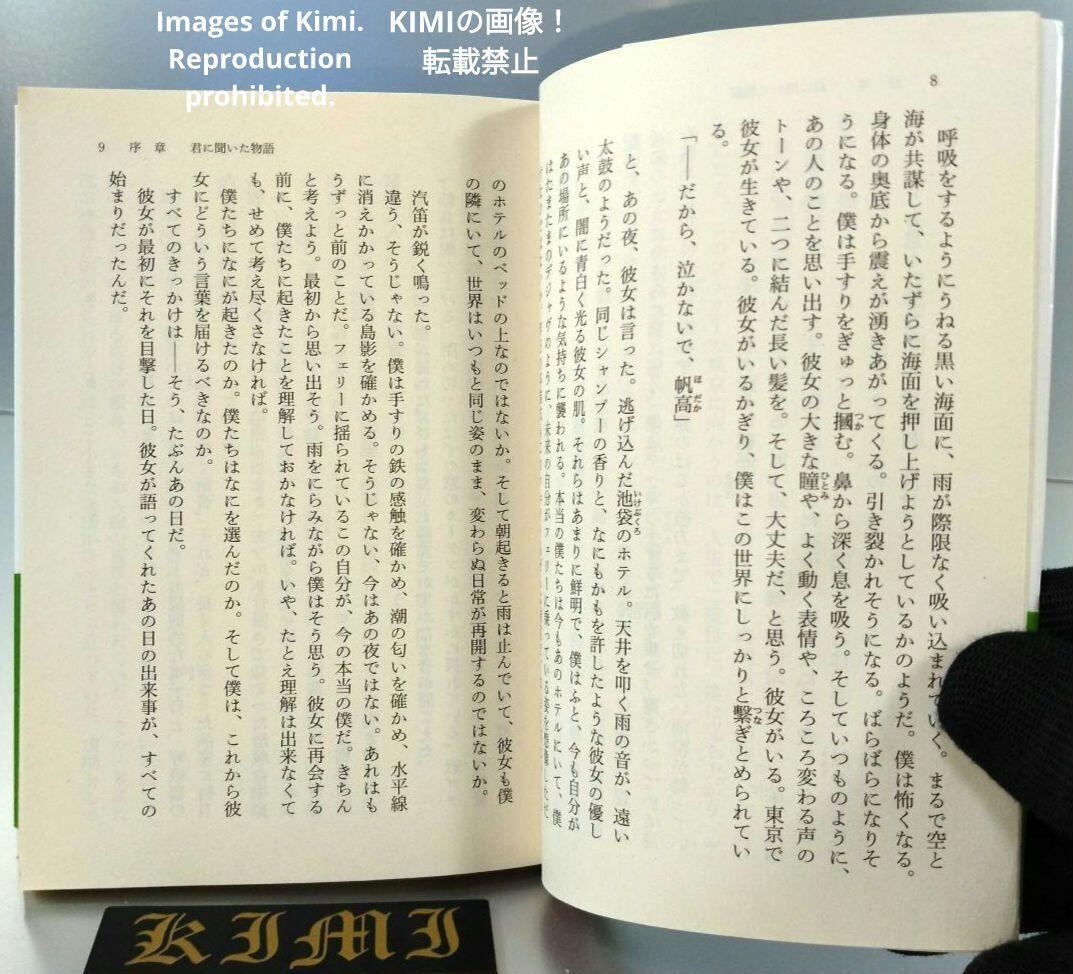 Images of Kimi.
Reproduction
prohibited.
KIMIの画像！
転載禁止
8
呼吸をするようにうねる黒い海面に、雨が際限なく吸い込まれていく。まるで空と
海が共謀して、いたずらに海面を押し上げようとしているかのようだ。僕は怖くなる。
身体の奥底から震えが湧きあがってくる。引き裂かれそうになる。ばらばらになりそ
うになる。僕は手すりをぎゅっと掴む。鼻から深く息を吸う。そしていつものように、
あの人のことを思い出す。彼女の大きな瞳や、よく動く表情や、ころころ変わる声の
トーンや、二つに結んだ長い髪を。そして、大丈夫だ、と思う。彼女がいる。東京で
彼女が生きている。彼女がいるかぎり、僕はこの世界にしっかりと繋ぎとめられてい
る。
「――だから、泣かないで、帆高」
と、あの夜、彼女は言った。逃げ込んだ池袋のホテル。天井を叩く雨の音が、遠い
太鼓のようだった。同じシャンプーの香りと、なにもかもを許したような彼女の優し
い声と、闇に青白く光る彼女の肌。それらはあまりに鮮明で、僕はふと、今も自分が
あの場所にいるような気持ちに襲われる。本当の僕たちは今もあのホテルにいて、僕
はたまたまのデジャヴのように、未来の自分がフェリーに乗っている姿を想像しただ
9 序章 君に聞いた物語
のホテルのベッドの上なのではないか。そして朝起きると雨は止んでいて、彼女も僕
の隣にいて、世界はいつもと同じ姿のまま、変わらぬ日常が再開するのではないか。
汽笛が鋭く鳴った。
違う、そうじゃない。僕は手すりの鉄の感触を確かめ、潮の匂いを確かめ、水平線
に消えかかっている島影を確かめる。そうじゃない、今はあの夜ではない。あれはも
うずっと前のことだ。フェリーに揺られているこの自分が、今の本当の僕だ。きちん
と考えよう。最初から思い出そう。雨をにらみながら僕はそう思う。彼女に再会する
前に、僕たちに起きたことを理解しておかなければ。いや、たとえ理解は出来なくて
も、せめて考え尽くさなければ。
僕たちになにが起きたのか。僕たちはなにを選んだのか。そして僕は、これから彼
女にどういう言葉を届けるべきなのか。
すべてのきっかけは――そう、たぶんあの日だ。
彼女が最初にそれを目撃した日。彼女が語ってくれたあの日の出来事が、すべての
始まりだったんだ。
KIMI